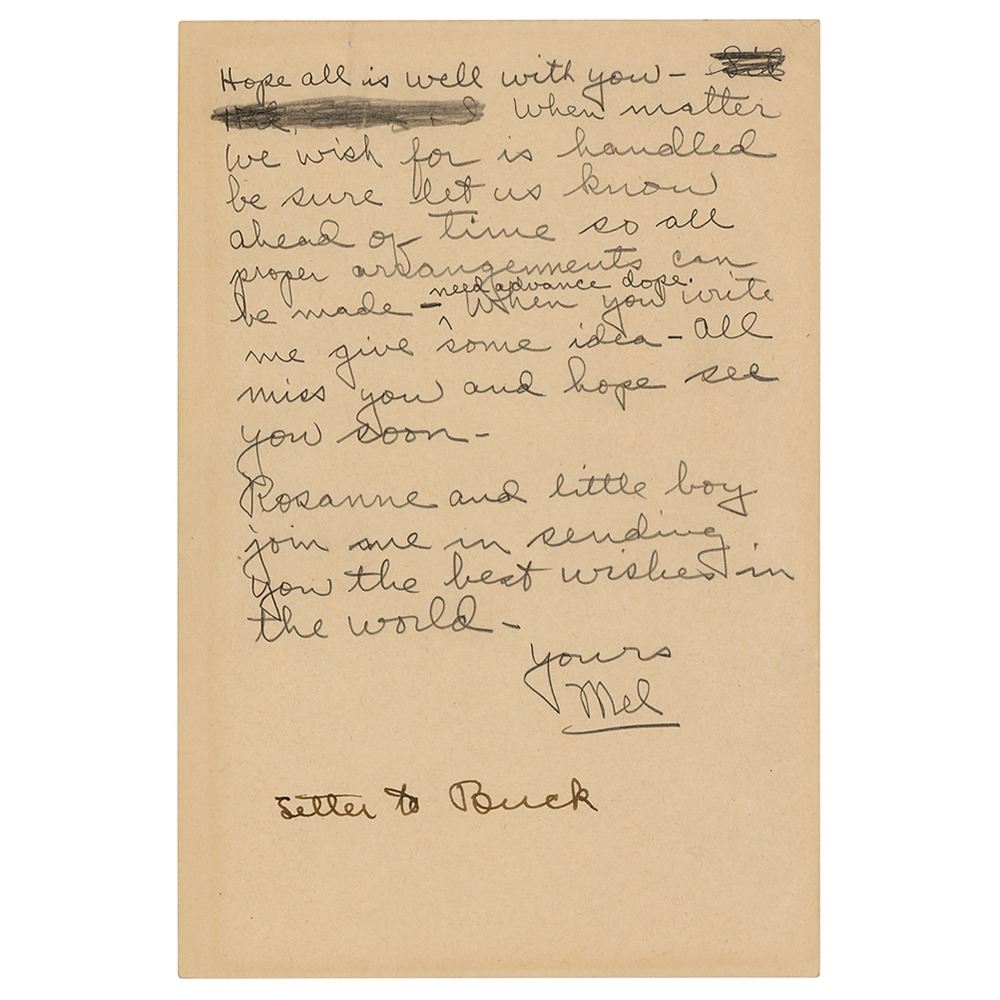 Hope all is well with you -
When matter
we wish for is handled
be sure let us know
ahead of time so all
proper arrangements can
need advance dope.
be made - When you write
me give some idea - All
miss you and hope see
you soon -
Rosanne and little boy
join me in sending
you the best wishes in
the world -
yours
Mel
Letter to Buck